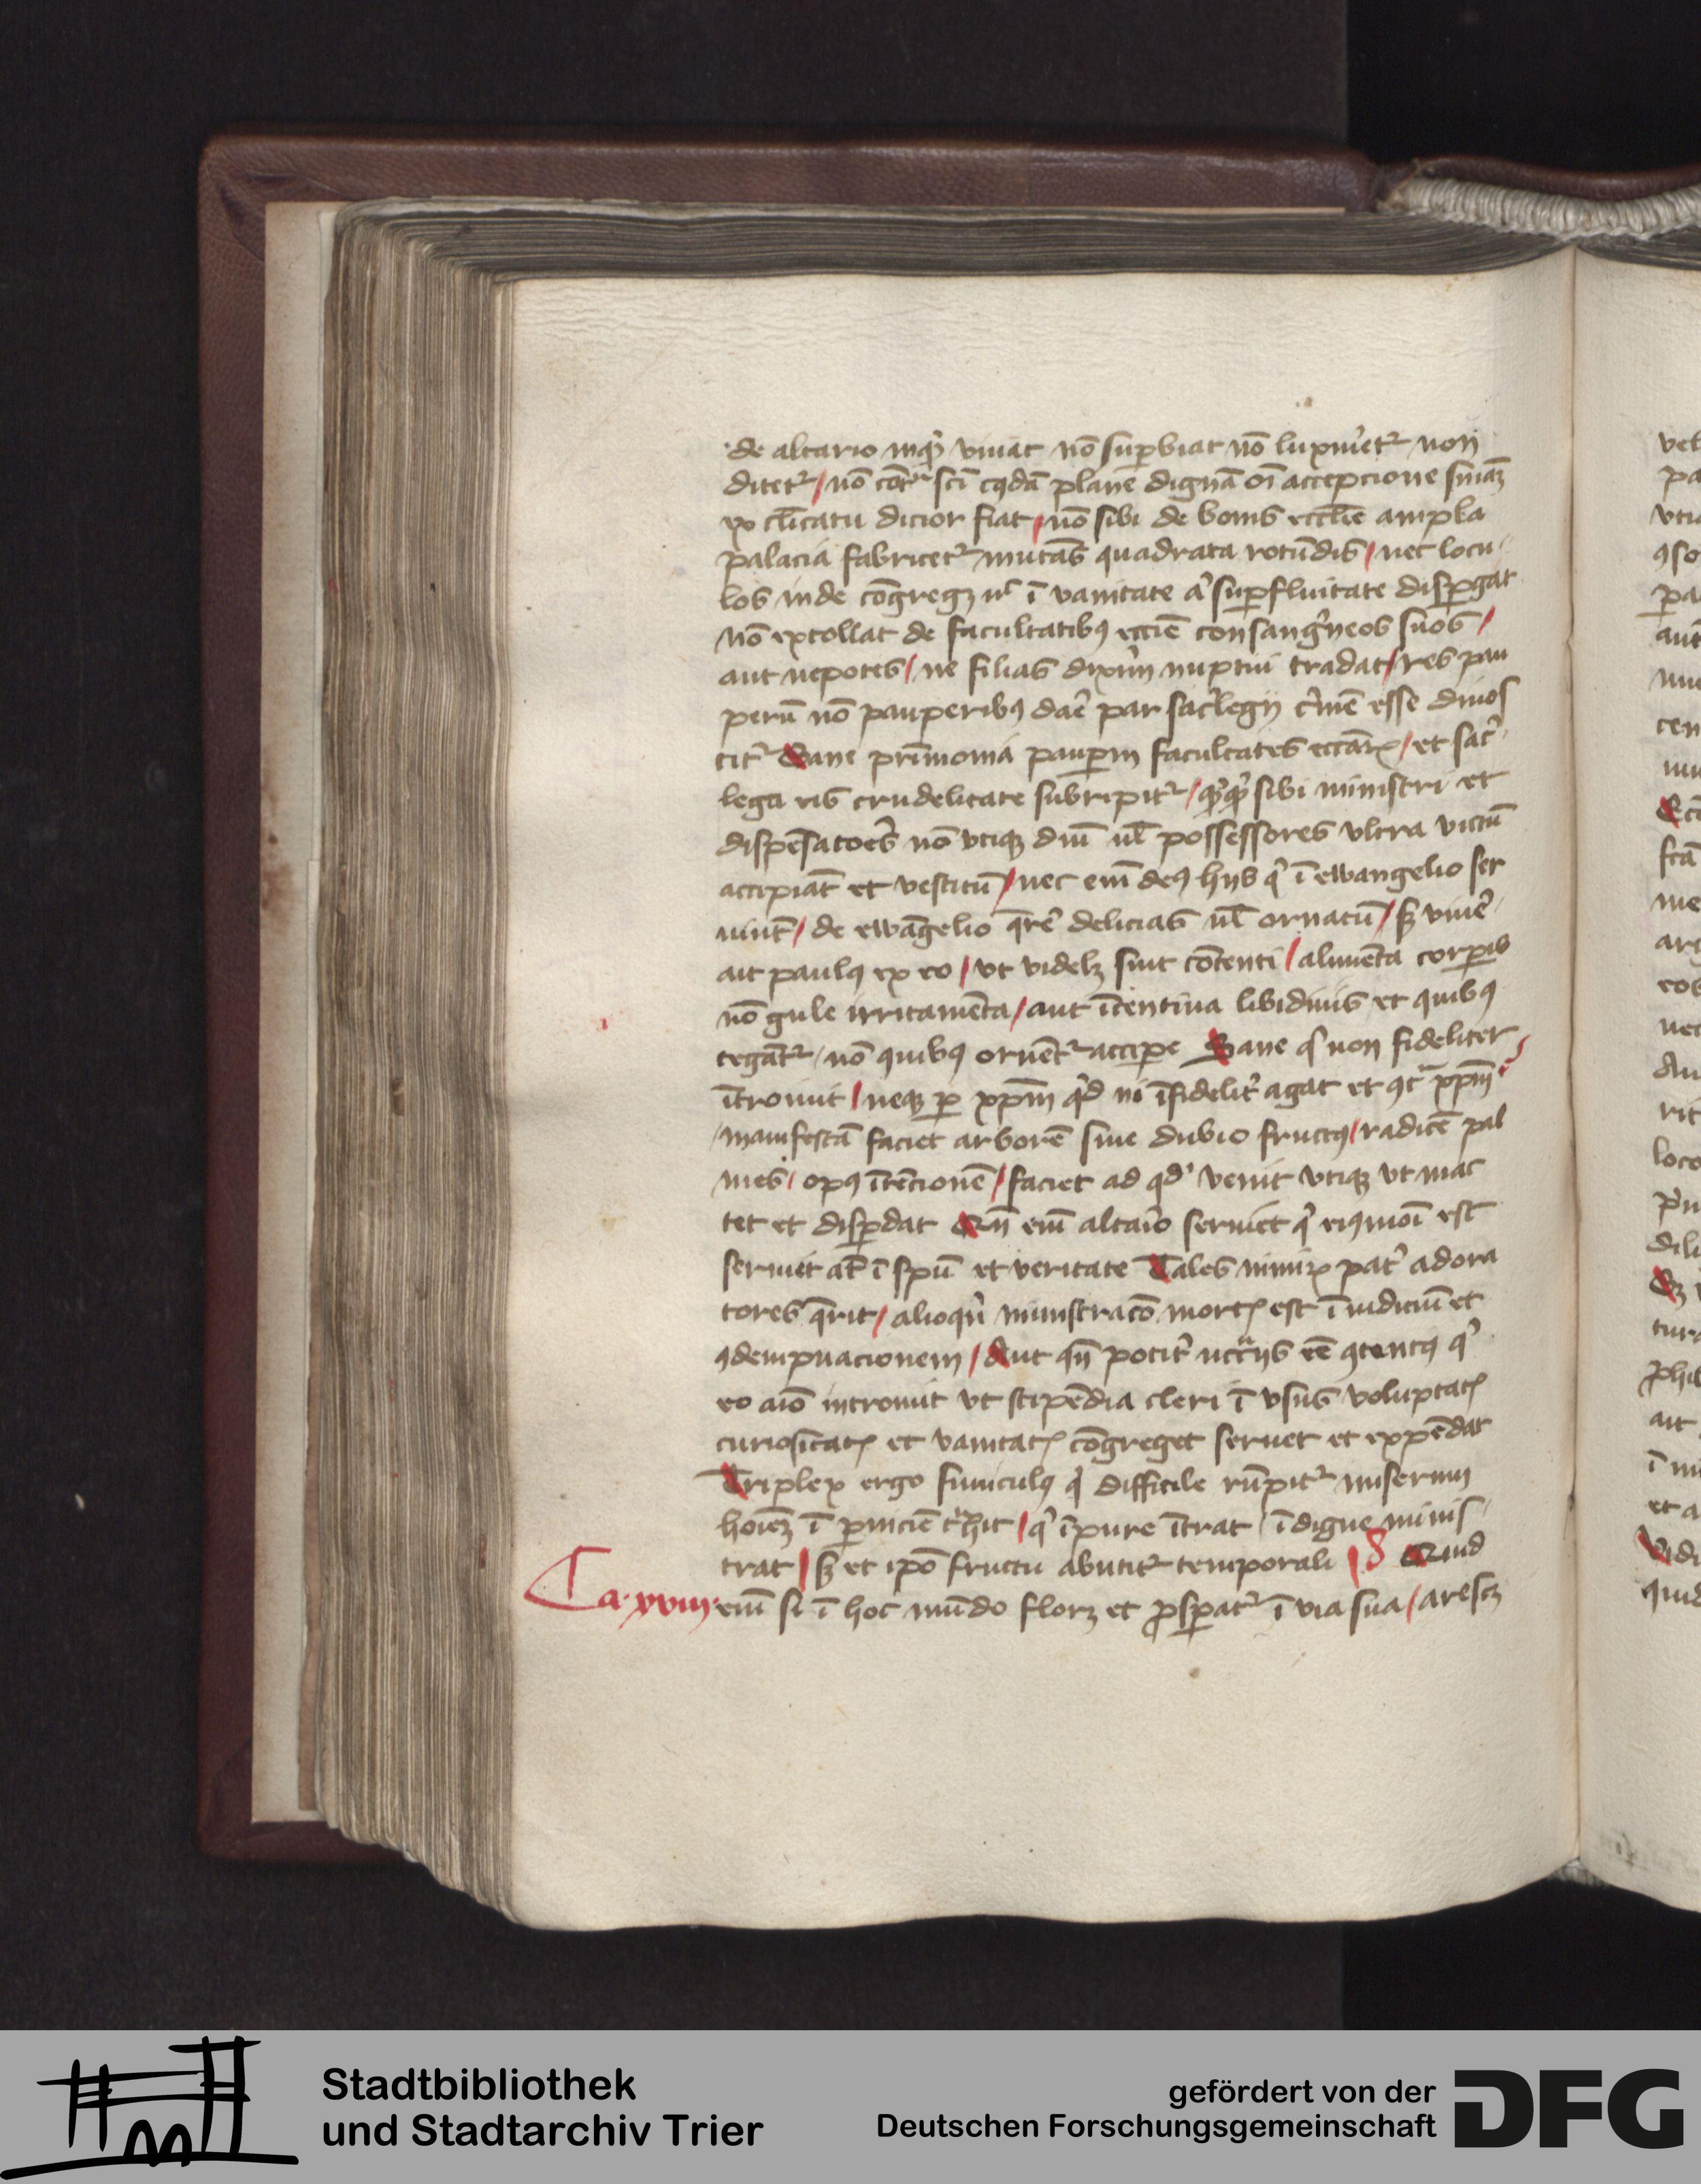 de altario inqͥ viuat nō suꝑbiat nō luxuͥetᷣ non
ditetᷣ / nō cōtᷣ scī cꝯdā plane dignā oī accepcione sniaꝫ
ex cl̄icatu dicior fiat / nō sibi de bonis eccl̄ie ampla
palacia fabricetᷣ mutās quadrata rotūdis / nec locu
los inde cōgregꝫ nͨ ī vanitate aͥ suꝑfluitate disꝑgat
nō extollat de facultatibꝯ eccīe consangͥneos suos /
aut nepotes / ne filias dixiͥm nuptui tradat / res pau
perū nō pauperibꝯ daͤ par sacͥlegij cͥmē esse dinos
citᷣ Sane pr̄imonia pauꝑm facultates eccāꝝ / et sacͥ
lega eis crudelitate subripitᷣ / qͥqͥ sibi ministri et
dispēsatoes nō vtiqꝫ dm̄ ul̄ possessores vltra victū
accipiāt et vestitū / nec em̄ deꝯ hijs qͥ ī ewangelio ser
uiūt / de ewāgelio qͣre delicias ul̄ ornatū / sꝫ viueͤ
ait paulꝯ ex eo / vt videlꝫ sint cōtenti / alimēta corꝑis
nō gule irritamēta / aut īcentiua libidinis et quibꝯ
tegātᷣ / nō quibꝯ ornētᷣ accipe Sane qͥ non fideliter
ītroiuit / neqꝫ ꝑ xp̄m qͥd nī īfidelitͤ agat et ꝯtͣ xp̄m
manifestā faciet arborē siue dubio fructꝯ / radicē pal
mes / opꝯ ītēcionē / faciet ad qd' venit vtiqꝫ vt mac
tet et disꝑdat Qn̄ em̄ altaͥo seruiet qͥ eiꝯmoī est
seruit at̄ ī sp̄u et veritate Tales nimiꝝ patͤ adora
tores qͣrit / alioqͥn ministracō mortꝭ est ī iudiciū et
ꝯdempnacionem / Aut qn̄ potitͤ nccͣijs eē ꝯtentꝯ qͥ
eo aīo introiuit vt stipēdia cleri ī vsus voluptatꝭ
curiositatꝭ et vanitatꝭ cōgreget seruet et expēdat
Triplex ergo funiculꝯ qͥ difficile rūpitᷣ miserum
hoīeꝫ ī ꝑnicīē tͣhit / qͥ īpure ītrat / īdigne minis
trat / sꝫ et ip̄o fructu abutitᷣ temporali / Quid
Ca xviij em̄ si ī hoc mūdo florꝫ et ꝓsꝑatᷣ ī via sua / arescꝫ
Stadtbibliothek
und Stadtarchiv Trier
gefördert von der
Deutschen Forschungsgemeinschaft
DFG